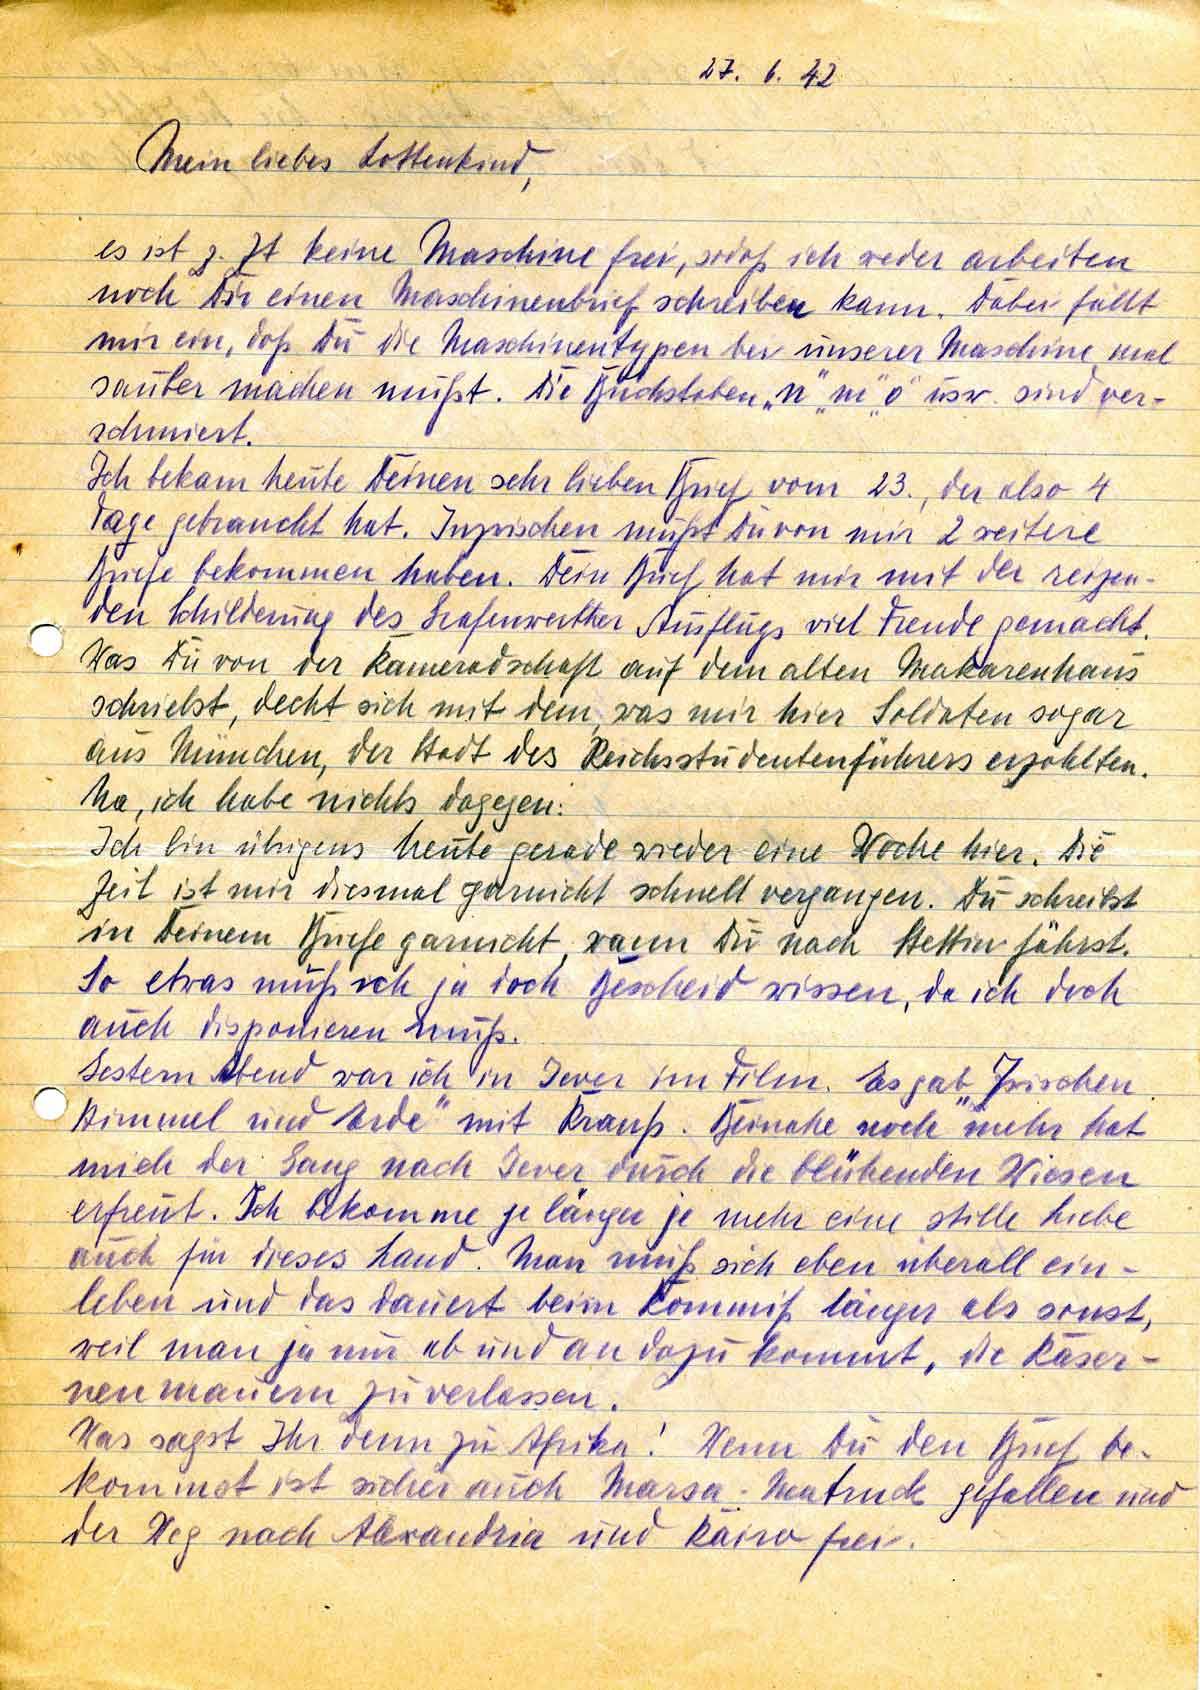 27. 6. 42
Mein liebes Lottenkind,
es ist z. Zt keine Maschine frei, sodaß ich weder arbeiten
noch Dir einen Maschinenbrief schreiben kann. Dabei fällt
mir ein, daß Du die Maschinentypen bei unserer Maschine mal
sauber machen mußt. Die Buchstaben „n" „m" „o" usw. sind ver-
schmiert.
Ich bekam heute Deinen sehr lieben Brief vom 23., der also 4
Tage gebraucht hat. Inzwischen mußt Du von mir 2 weitere
Briefe bekommen haben. Dein Brief hat mir mit der reizen-
den Schilderung des Grafenwerther Ausflugs viel Freude gemacht.
Was Du von der Kameradschaft auf dem alten Makarenhaus
schriebst, deckt sich mit dem, was mir hier Soldaten sogar
aus München, der Stadt des Reichsstudentenführers erzählten.
Na, ich habe nichts dagegen.
Ich bin übrigens heute gerade wieder eine Woche hier. Die
Zeit ist mir diesmal garnicht schnell vergangen. Du schreibst
in Deinem Briefe garnicht, wann Du nach Stettin fährst.
So etwas muß ich ja doch Bescheid wissen, da ich doch
auch disponieren muß.
Gestern Abend war ich in Jever im Film. Es gab „Zwischen
Himmel und Erde" mit Krauß. Beinahe noch mehr hat
mich der Gang nach Jever durch die blühenden Wiesen
erfreut. Ich bekomme je länger je mehr eine stille Liebe
auch für dieses Land. Man muß sich eben überall ein-
leben und das dauert beim Kommiß länger als sonst,
weil man ja nur ab und an dazu kommt, die Kaser-
nenmauern zu verlassen.
Was sagst Ihr denn zu Afrika! Wenn Du den Brief be-
kommst ist sicher auch Marsa-Matruck gefallen und
der Weg nach Alexandria und Kairo frei.